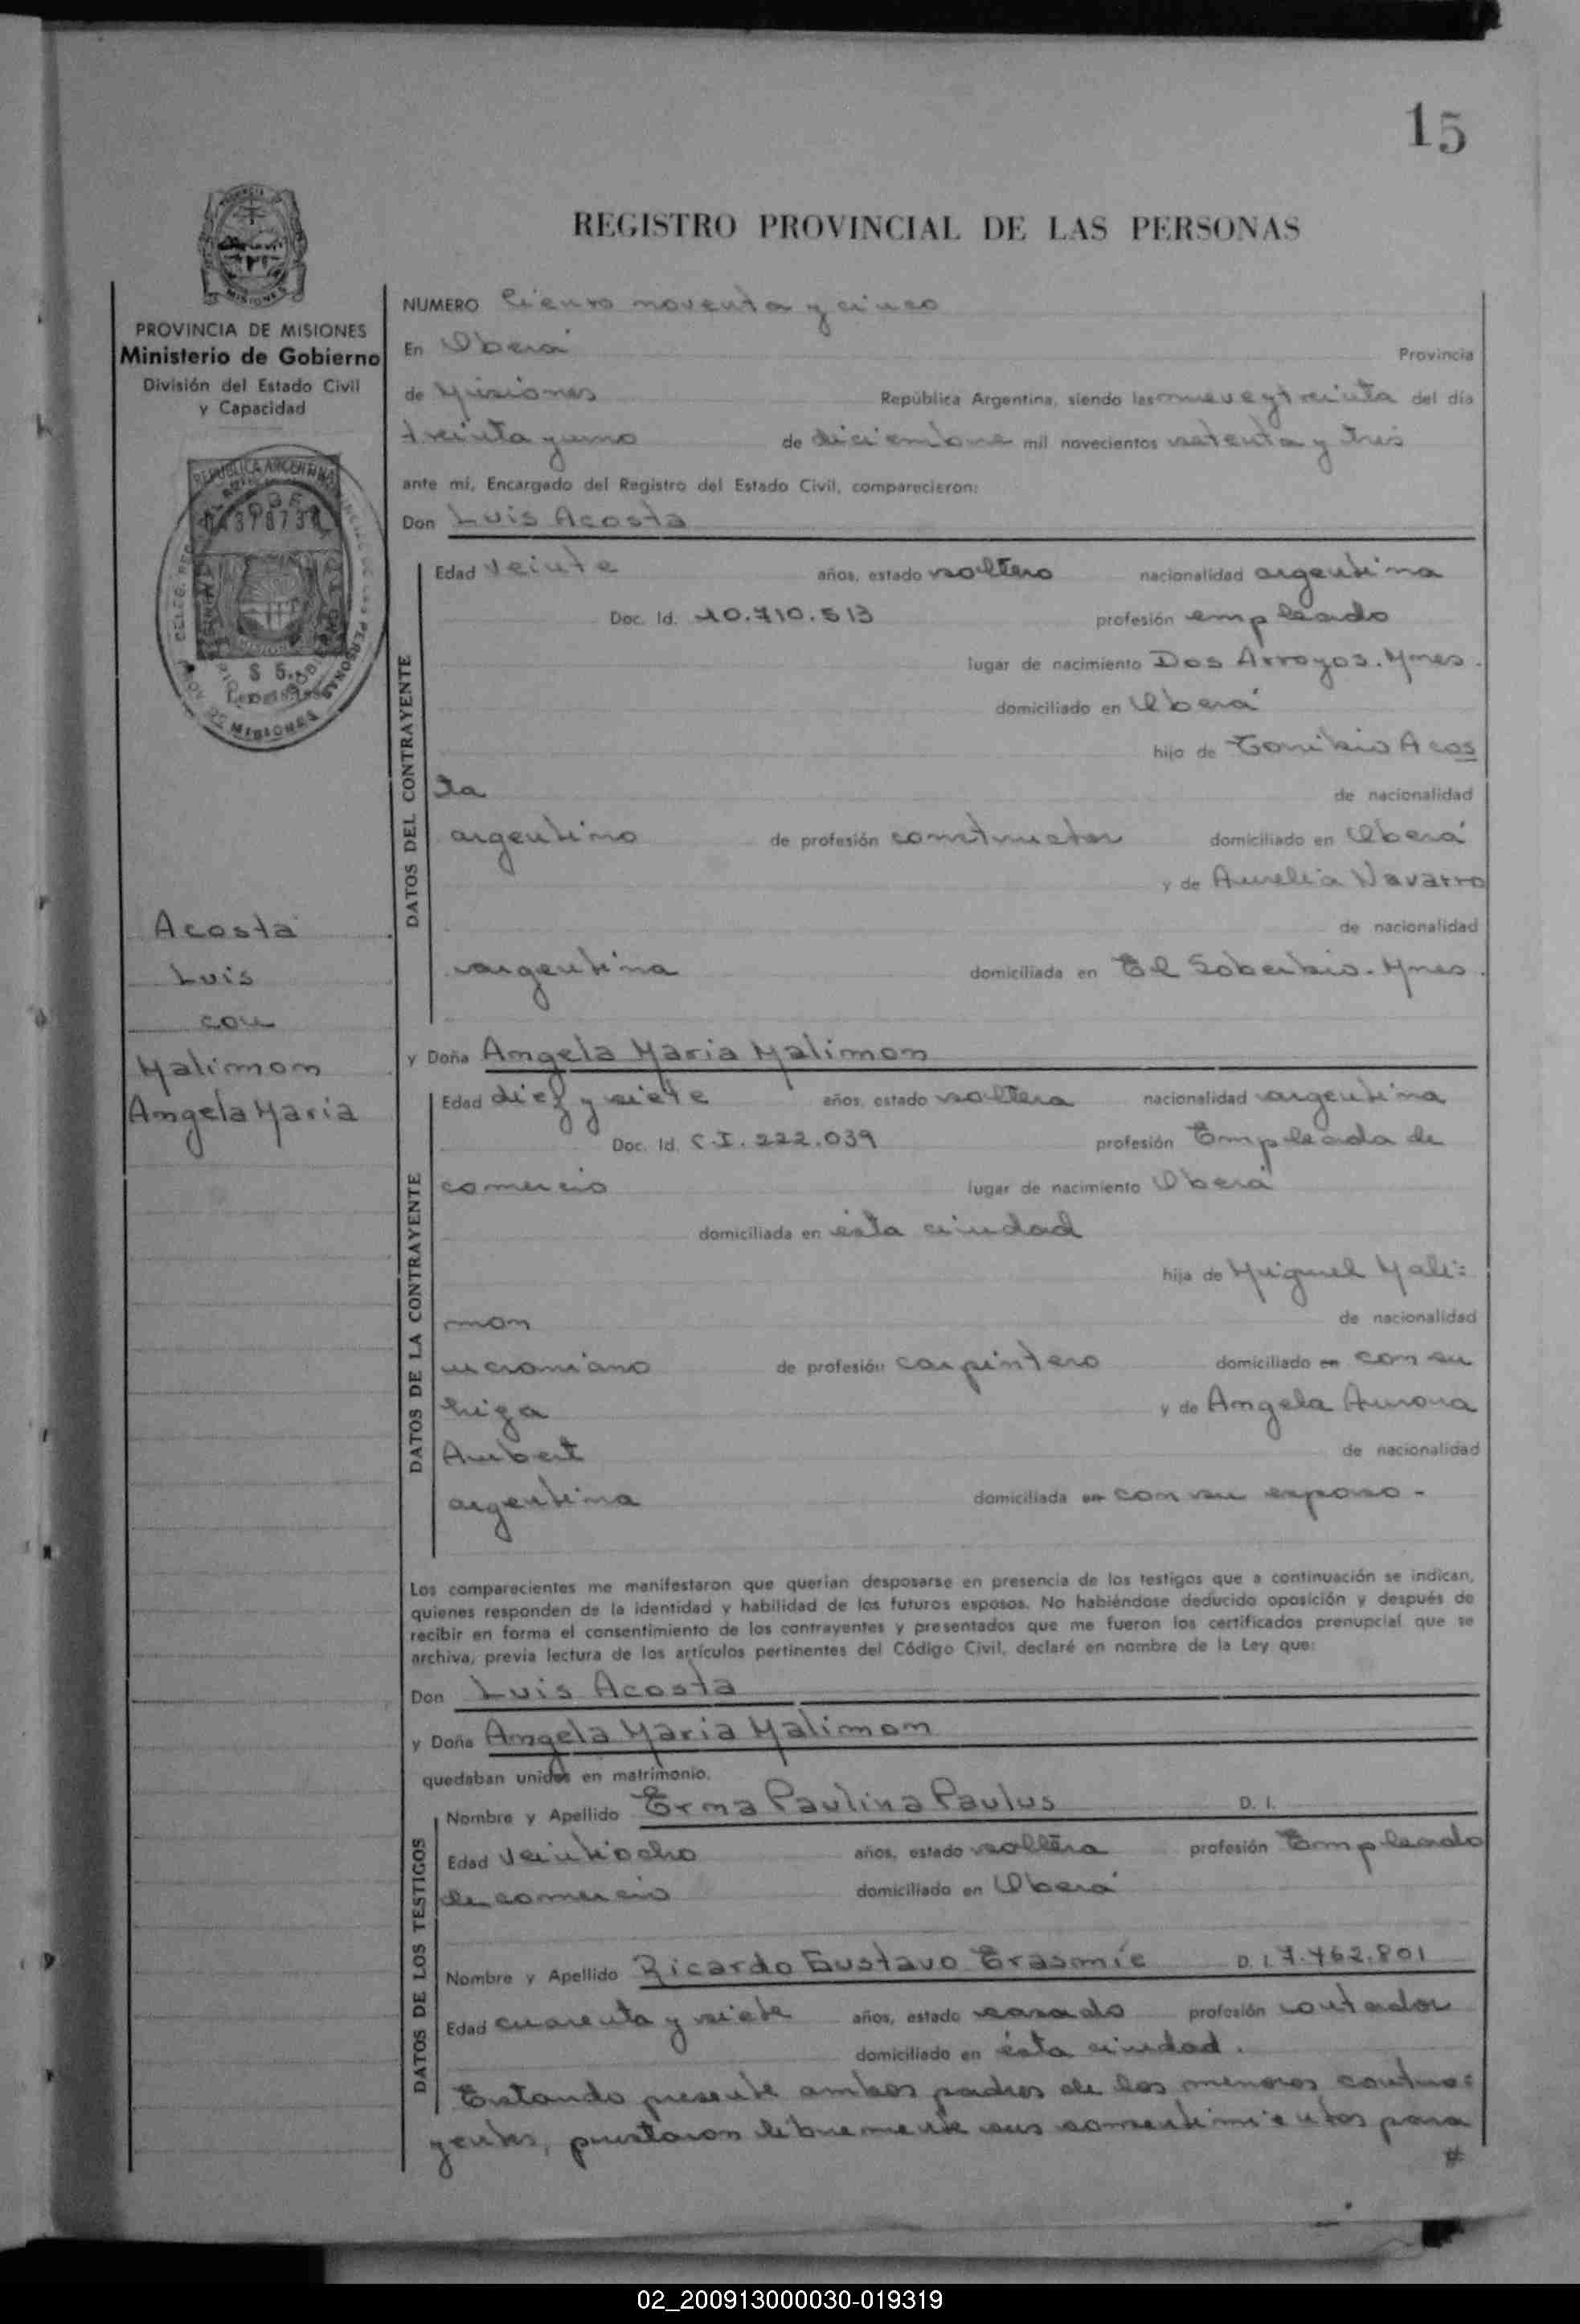 15
REGISTRO PROVINCIAL DE LAS PERSONAS
PROVINCIA DE MISIONES
Ministerio de Gobierno
División del Estado Civil
y Capacidad
REPUBLICA ARGENTINA
$ 5.-
MISIONES
Acosta
Luis
con
Malimon
Angela Maria
NUMERO Ciento noventa y cinco
En Oberá Provincia
de Misiones República Argentina, siendo las nueve y treinta del día
treinta y uno de diciembre mil novecientos setenta y tres
ante mí, Encargado del Registro del Estado Civil, comparecieron:
Don Luis Acosta
DATOS DEL CONTRAYENTE
Edad veinte años, estado soltero nacionalidad argentina
Doc. Id. 10.710.513 profesión empleado
lugar de nacimiento Dos Arroyos. Mnes.
domiciliado en Oberá
hijo de Toribio Acos
ta de nacionalidad
argentino de profesión constructor domiciliado en Oberá
y de Aurelia Navarro
de nacionalidad
argentina domiciliada en El Soberbio. Mnes.
y Doña Angela Maria Malimon
DATOS DE LA CONTRAYENTE
Edad diez y siete años, estado soltera nacionalidad argentina
Doc. Id. C.I. 222.039 profesión Empleada de
comercio lugar de nacimiento Oberá
domiciliada en ésta ciudad
hija de Miguel Mali=
mon de nacionalidad
ucraniano de profesión carpintero domiciliado en con su
hija y de Angela Aurora
Aubert de nacionalidad
argentina domiciliada en con su esposo -
Los comparecientes me manifestaron que querían desposarse en presencia de los testigos que a continuación se indican,
quienes responden de la identidad y habilidad de los futuros esposos. No habiéndose deducido oposición y después de
recibir en forma el consentimiento de los contrayentes y presentados que me fueron los certificados prenupcial que se
archiva, previa lectura de los artículos pertinentes del Código Civil, declaré en nombre de la Ley que:
Don Luis Acosta
y Doña Angela Maria Malimon
quedaban unidos en matrimonio.
DATOS DE LOS TESTIGOS
Nombre y Apellido Erma Paulina Paulus D. I.
Edad veintiocho años, estado soltera profesión Empleado
de comercio domiciliado en Oberá
Nombre y Apellido Ricardo Gustavo Erasmie D. I. 7.462.801
Edad cuarenta y siete años, estado casado profesión contador
domiciliado en ésta ciudad.
Estando presente ambos padres de los menores contra=
yentes, prestaron libremente sus consentimientos para
#
02_200913000030-019319